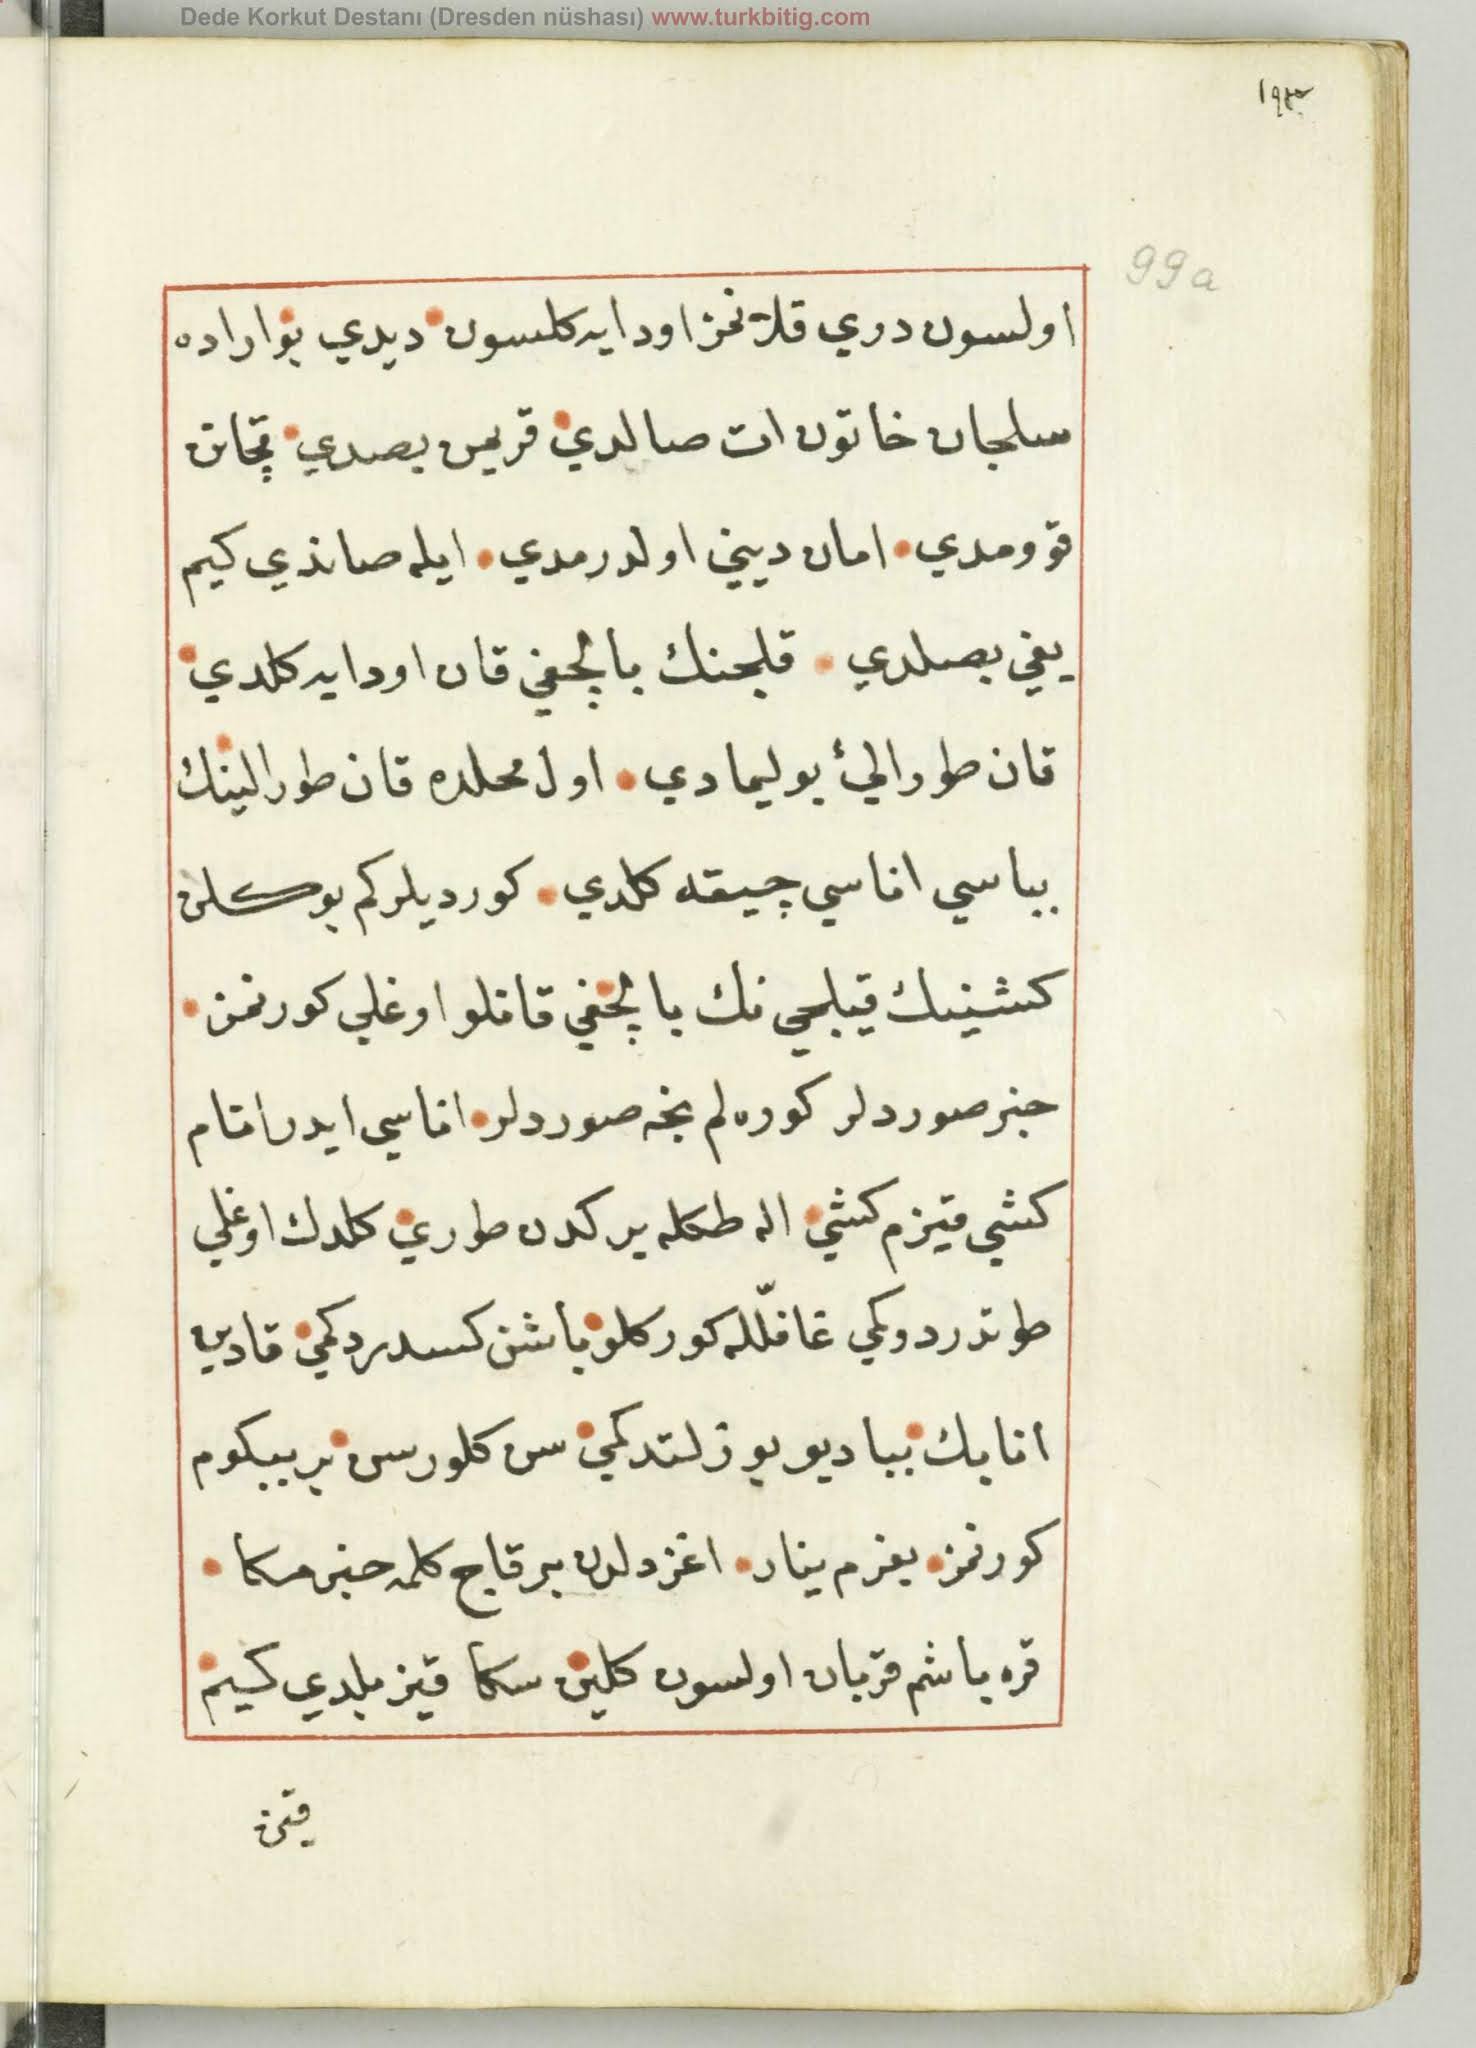 Dede Korkut Destanı (Dresden nüshası) www.turkbitig.com
99a
اولسون دري قلانمز اودايه كلسون ديدي بو اراده
سلجان خاتون ات صالدي قريمن بصدي قچانن
قوومدي امان ديني اولدرمدي ايله صانذي كيم
يغي بصلدي قلجنك بالچغي قان اودايه كلدي
قان طورالي بوليمادي اول محلده قان طورالينك
بباسي اناسي چيقه كلدي كورديلركم بو كلن
كشينيك قيلجي نك بالچغي قانلو اوغلي كورنمز
خبر صوردلر كوره لم نجه صوردلر اناسي ايدر انام
كشي قيزم كشي اله طكله ير كدن طوري كلدك اوغلي
طوتدردوكمي غافلله كوركلو باشن كسدردكمي قادين
انا بك ببا ديو بوزلتدكمي سن كلورسن بر ببكوم
كورنمز بغرم ينار اغز دلدن بر قاچ كلمه خبر مكا
قره باشم قربان اولسون كلين سكا قيز بلدي كيم
قين